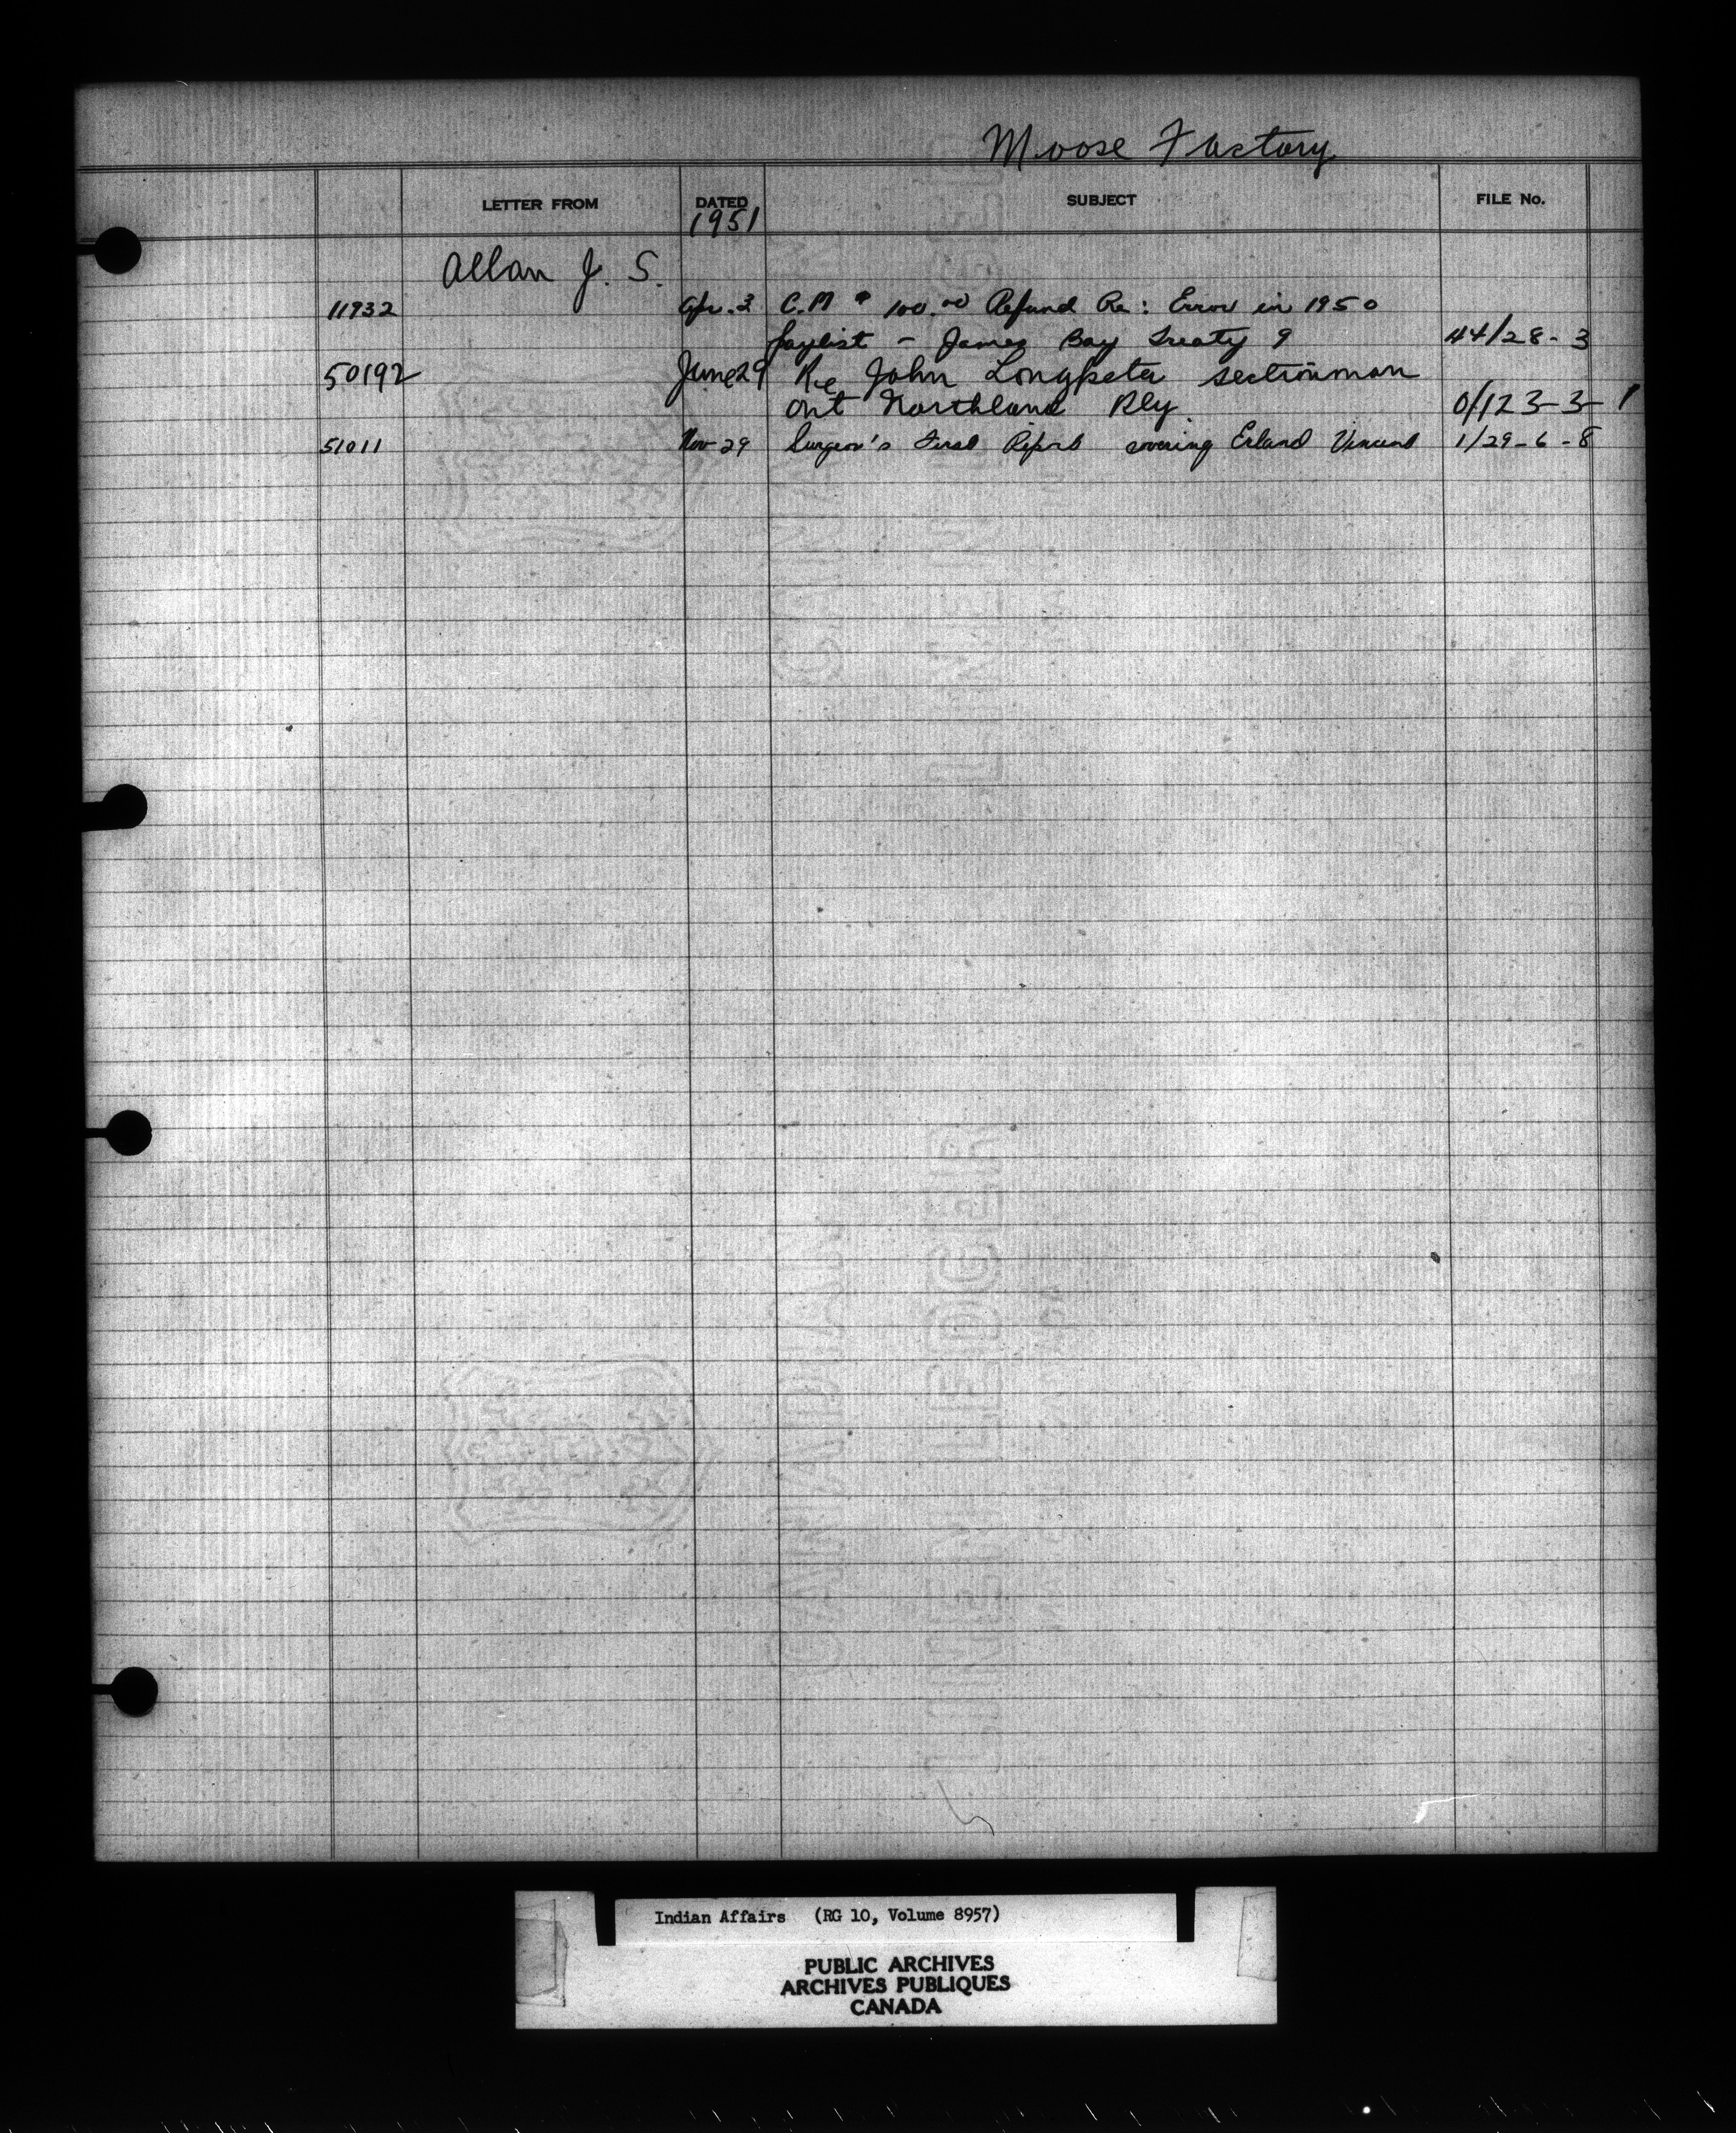 Moose Factory
LETTER FROM DATED SUBJECT FILE No.
1951
Allan J. S.
11932 Apr. 3 C.M # 100.00 Refund Re: Error in 1950
paylist - James Bay Treaty 9 44/28-3
50192 June 29 Re John Longpeter sectionman
Ont Northland Rly 0/123-3-1
51011 Nov-29 Surgeon's First Report covering Erland Vincent 1/29-6-8
Indian Affairs (RG 10, Volume 8957)
PUBLIC ARCHIVES
ARCHIVES PUBLIQUES
CANADA